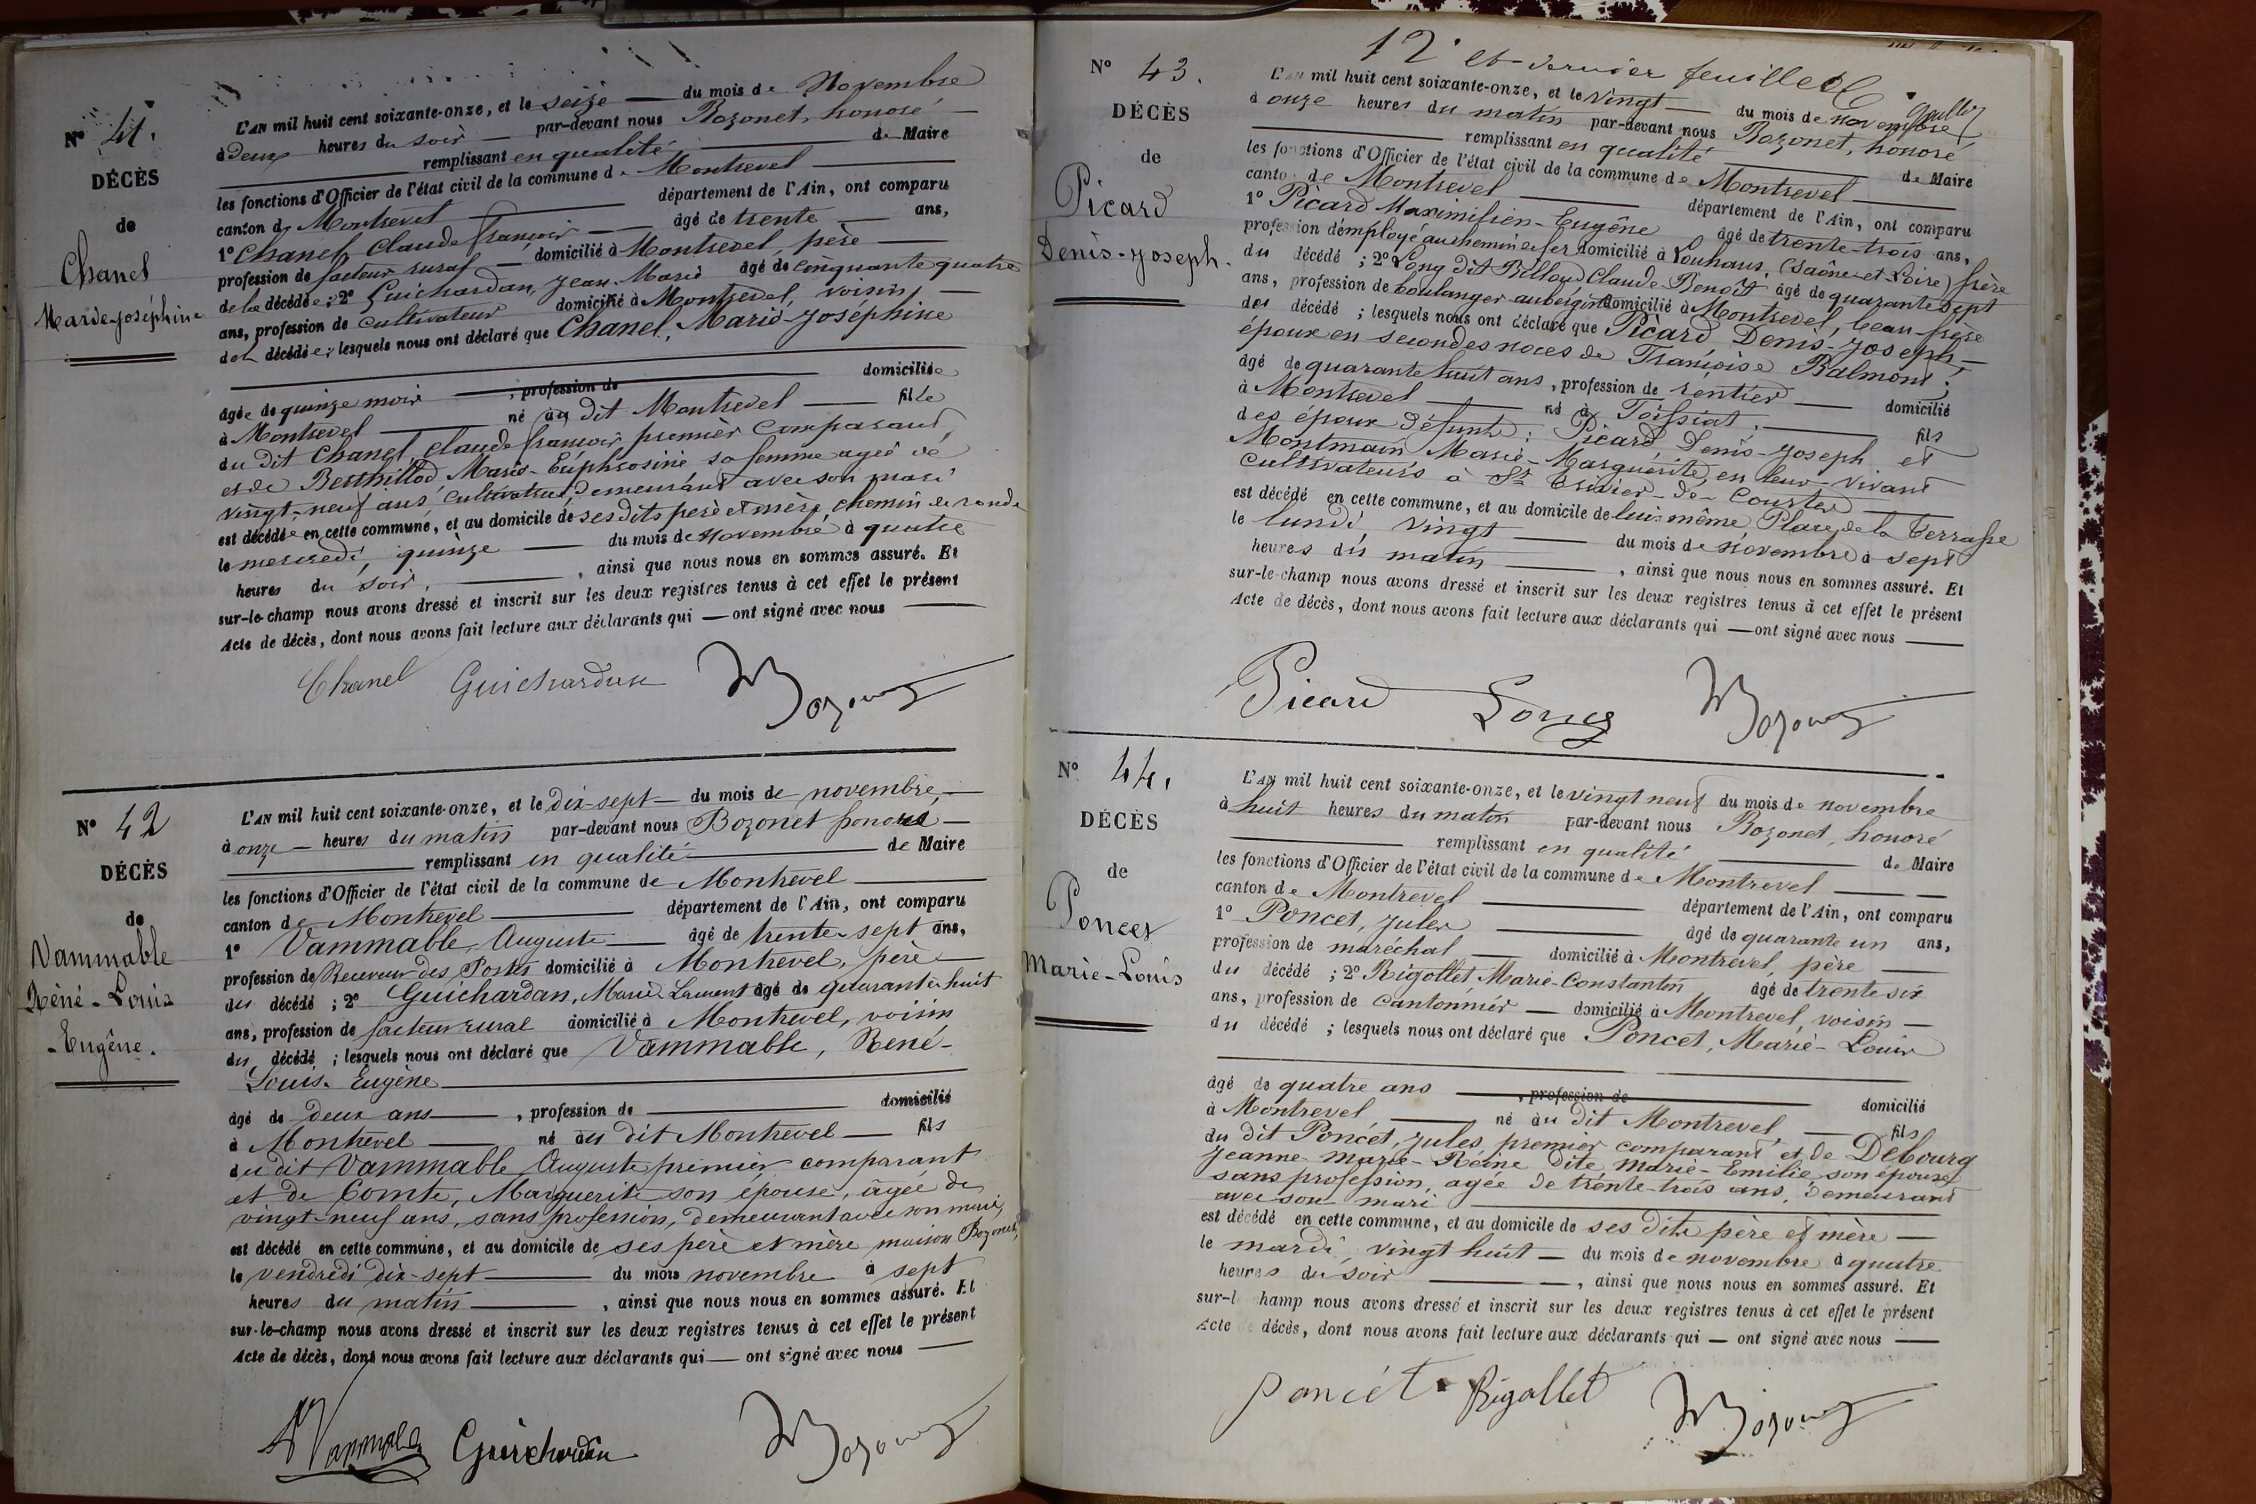 N° 41.
DÉCÈS
de
Chanel
Marie-Joséphine
L'AN mil huit cent soixante-onze, et le seize du mois de Novembre
à Deux heures du soir par-devant nous Bozonet, honoré
remplissant en qualité de Maire
les fonctions d'Officier de l'état civil de la commune de Montrevel
canton d Montrevel département de l'Ain, ont comparu
1° Chanel, Claude françois âgé de trente ans,
profession de facteur rural domicilié à Montrevel, père
de la décédée; 2° Guichardan, Jean-Marie âgé de cinquante quatre
ans, profession de cultivateur domicilié à Montrevel, voisin
de la décédée; lesquels nous ont déclaré que Chanel, Marie-Joséphine
âgée de quinze mois, profession de domiciliée
à Montrevel né au dit Montrevel fille
du dit Chanel, Claude françois premier comparant,
et de Berthillod Marie-Euphrosine sa femme agée de
vingt-neuf ans, cultivatrice, demeurant avec son mari
est décédée en cette commune, et au domicile de ses dits père et mère, chemin de ronde
le mercredi, quinze du mois de novembre à quatre
heures du soir, , ainsi que nous nous en sommes assuré. Et
sur-le-champ nous avons dressé et inscrit sur les deux registres tenus à cet effet le présent
Acte de décès, dont nous avons fait lecture aux déclarants qui — ont signé avec nous
Chanel Guichardan Bozonet
N° 42
DÉCÈS
de
Vammable
Réné-Louis
-Eugêne.
L'AN mil huit cent soixante-onze, et le dix-sept du mois de novembre,
à onze heures du matin par-devant nous Bozonet honoré
remplissant en qualité de Maire
les fonctions d'Officier de l'état civil de la commune de Montrevel
canton de Montrevel département de l'Ain, ont comparu
1° Vammable, Auguste âgé de trente-sept ans,
profession de Receveur des Postes domicilié à Montrevel, père
du décédé ; 2° Guichardan, Marie Laurent âgé de quarante huit
ans, profession de facteur rural domicilié à Montrevel, voisin
du décédé ; lesquels nous ont déclaré que Vammable, René-
Louis-Eugène
âgé de deux ans, profession de domicilié
à Montrevel né au dit Montrevel fils
du dit Vammable Auguste premier comparant
et de Comte, Marguerite son épouse, agée de
vingt-neuf ans, sans profession, demeurant avec son mari,
est décédé en cette commune, et au domicile de ses père et mère maison Bozonet,
le vendredi dix-sept du mois novembre à sept
heures du matin , ainsi que nous nous en sommes assuré. Et
sur-le-champ nous avons dressé et inscrit sur les deux registres tenus à cet effet le présent
Acte de décès, dont nous avons fait lecture aux déclarants qui — ont signé avec nous
Vammable Guichardan Bozonet
12e et dernier feuillet
N° 43.
DÉCÈS
de
Picard
Denis-Joseph.
L'AN mil huit cent soixante-onze, et le vingt du mois de novembre
à onze heures du matin par-devant nous Bozonet, honoré
remplissant en qualité de Maire
les fonctions d'Officier de l'état civil de la commune de Montrevel
canton de Montrevel département de l'Ain, ont comparu
1° Picard Maximilien-Eugêne âgé de trente-trois ans,
profession d'employé au chemin de fer domicilié à Louhans, (Saône-et-Loire) frère
du décédé ; 2° Long dit Billoud Claude-Benoît âgé de quarante sept
ans, profession de boulanger aubergiste domicilié à Montrevel, beau-frère
du décédé ; lesquels nous ont déclaré que Picard Denis-Joseph,
époux en secondes noces de Françoise Balmont,
âgé de quarante huit ans, profession de rentier domicilié
à Montrevel né à Foissiat. fils
des époux défunts: Picard Denis-Joseph et
Montmain Marie-Marguerite, en leur vivant
cultivateurs à St Trivier-de-Courtes
est décédé en cette commune, et au domicile de lui-même Place de la Terrasse
le lundi vingt du mois de novembre à sept
heures du matin , ainsi que nous nous en sommes assuré. Et
sur-le-champ nous avons dressé et inscrit sur les deux registres tenus à cet effet le présent
Acte de décès, dont nous avons fait lecture aux déclarants qui — ont signé avec nous
Picard Long Bozonet
N° 44.
DÉCÈS
de
Poncet
Marie-Louis
L'AN mil huit cent soixante-onze, et le vingt neuf du mois de novembre
à huit heures du matin par-devant nous Bozonet, honoré
remplissant en qualité de Maire
les fonctions d'Officier de l'état civil de la commune de Montrevel
canton de Montrevel département de l'Ain, ont comparu
1° Poncet, Jules âgé de quarante un ans,
profession de maréchal domicilié à Montrevel, père
du décédé ; 2° Rigollet, Marie-Constantin âgé de trente six
ans, profession de cantonnier domicilié à Montrevel, voisin
du décédé ; lesquels nous ont déclaré que Poncet, Marie-Louis
âgé de quatre ans, profession de domicilié
à Montrevel, né au dit Montrevel, fils
du dit Poncet, Jules, premier comparant et de Debourg
Jeanne-Marie-Réine dite Marie-Emilie, son épouse
sans profession, agée de trente-trois ans, demeurant
avec son mari
est décédé en cette commune, et au domicile de ses dits père et mère
le mardi, vingt huit du mois de novembre à quatre
heures du soir , ainsi que nous nous en sommes assuré. Et
sur-le-champ nous avons dressé et inscrit sur les deux registres tenus à cet effet le présent
Acte de décès, dont nous avons fait lecture aux déclarants qui — ont signé avec nous
poncét Rigollet Bozonet